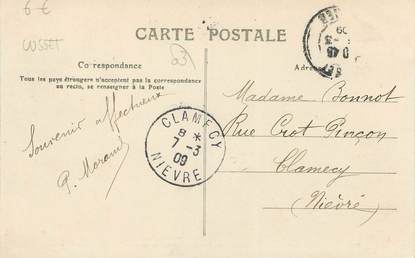 6 €
CUSSET
53
CARTE POSTALE
Correspondance
Tous les pays étrangers n'acceptent pas la correspondance
au recto, se renseigner à la Poste
Adres
09
Souvenir affectueux
CLAMECY
8 *
7-3
09
NIEVRE
Madame Bonnot
Rue Crot Pinçon
Clamecy
(Nièvre)